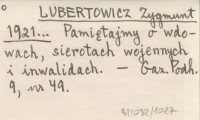 LUBERTOWICZ Zygmunt
1921... Pamiętajmy o wdo-
wach, sierotach wojennych
i inwalidach. — Gaz. Podh.
9, nr 49.